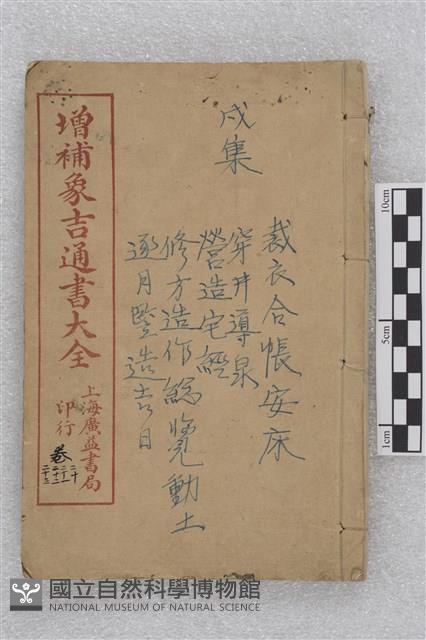 戍集
裁衣合帳安床
穿井導泉
營造宅經
修方造作緫覽動土
逐月竪造吉日
增補象吉通書大全
上海廣益書局
印行
卷
二十
二十一
二十二
二十三
10cm
5cm
1cm
國立自然科學博物館
NATIONAL MUSEUM OF NATURAL SCIENCE